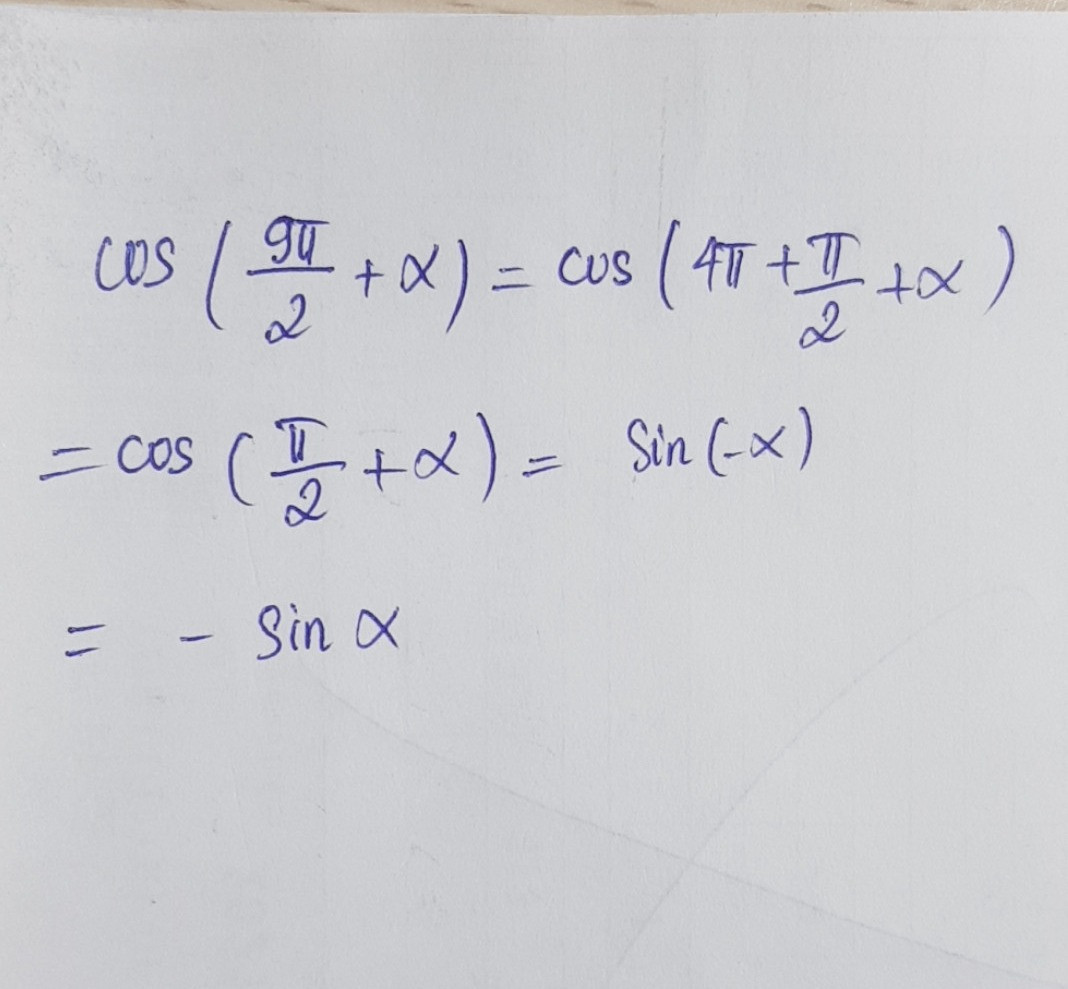 cos (9π/2 + α) = cos (4π + π/2 + α)
= cos (π/2 + α) = sin (-α)
= - sin α